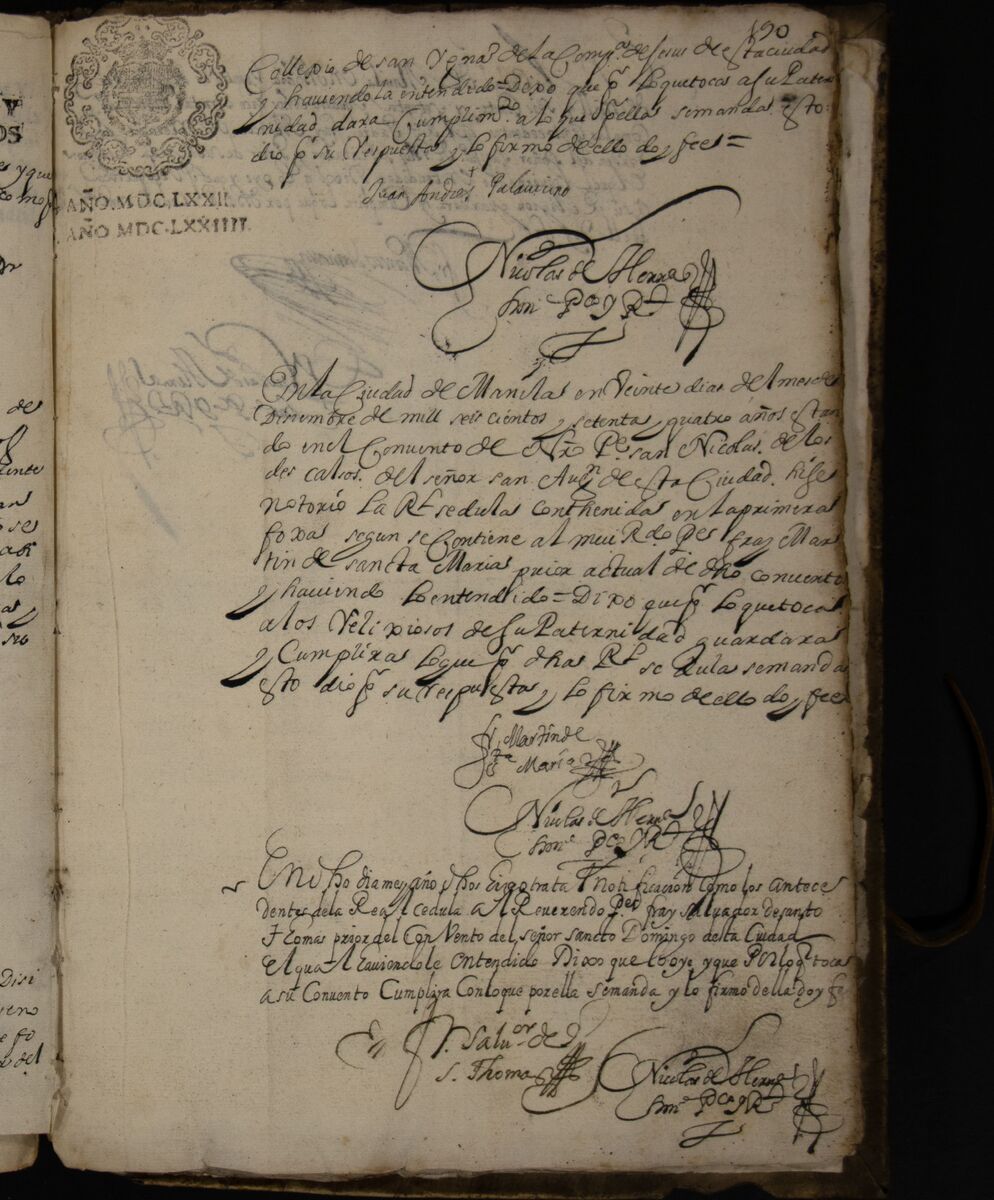 190
Collegio de san Ygnaº de la Compª de Jesus de esta ciudad
y haviendola entendido = Dixo que pʳ lo que toca a su Pater
nidad dara Cumplimᵗᵒ a lo que pʳ ella se manda esto
dio pʳ su Respuesta y lo firmo de ello doy fee =
Juan Andres Palauicino
AÑO.MDC.LXXII.
AÑO MDC.LXXIIII.
Nicolas de Herra
Sonᵉ Pᶜᵒ y Rˡ
En la Ciudad de Manila en Veinte dias del mes de
Diziembre de mill seis cientos y setenta y quatro años estan
do en el Convento de Nrō Pᵉ san Nicolas de los
descalsos del señor san Augⁿ de esta Ciudad hise
notorio la Rˡ sedula conthenida en la primera
foxa segun se Contiene al mui Rdo Pᵉ fray Mar
tin de sancta Maria prior actual de dho convento
y haviendolo entendido = Dixo que pʳ lo que toca
a los Relixiosos de su Paternidad guardara
y Cumplira lo que pʳ dha Rˡ sedula se manda
esto dio pʳ su respuesta y lo firmo de ello doy fee
fr. Martin de
Sᵗᵃ Maria
Nicolas de Herra
Sonᵉ Pᶜᵒ y Rˡ
En dho dia mes y año dhos hize otra tal Notificacion como los antece
dentes de la Real cedula al Reuerendo Pᵉ fray saluador de santo
Thomas prior del Convento del señor sancto Domingo desta Ciudad
el qual haviendole entendido Dixo que la oye y que Por lo q̄ toca
a su Convento Cumplira Con lo que por ella se manda y lo firmo della doy fe
Fr. Saluᵒʳ de
S. Thomas
Nicolas de Herra
Sonᵉ Pᶜᵒ y Rˡ